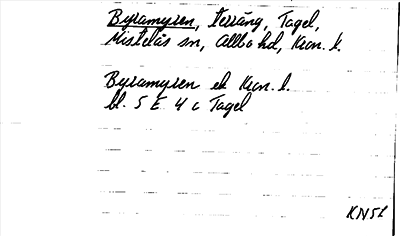 Byramyren, terräng, Tagel,
Mistelås sn, Allbo hd, Kron. l.
Byramyren ek Kron. l.
bl. 5 E 4 c Tagel
KN51